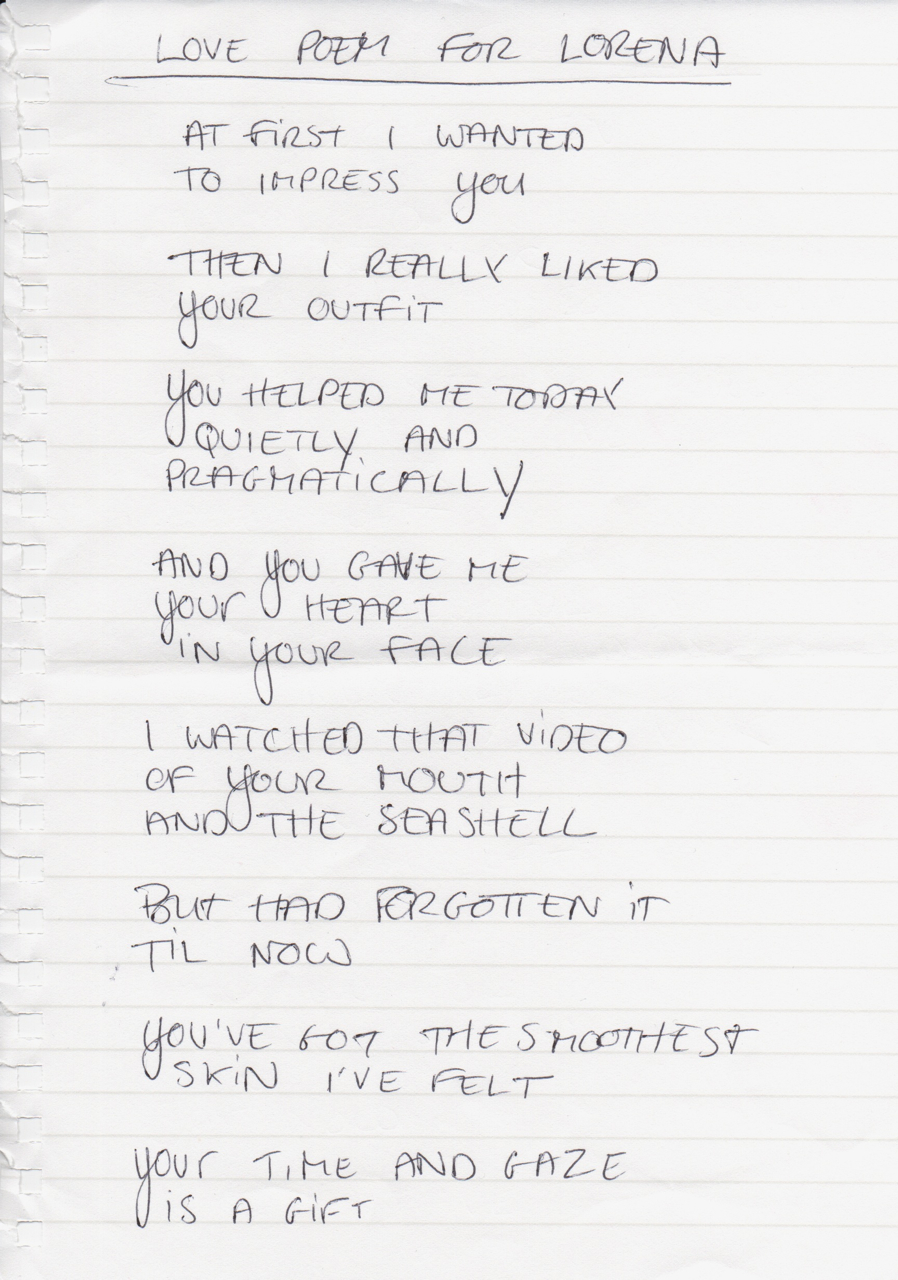 LOVE POEM FOR LORENA
AT FiRST I WANTED
TO IMPRESS you
THEN I REALLY LIKED
yOUR OUTFiT
yOU HELPED ME TODAY
QUIETLY AND
PRAGMATiCALLY
AND yOU GAVE ME
yOUr HEART
iN yOUR FACE
I WATCHED THAT ViDEO
OF yOUR MOUTH
AND THE SEASHELL
BUT HAD FORGOTTEN iT
TiL NOW
yOU'VE GOT THE SMOOTHEST
SKiN I'VE FELT
yOUr TiME AND GAZE
iS A GiFT